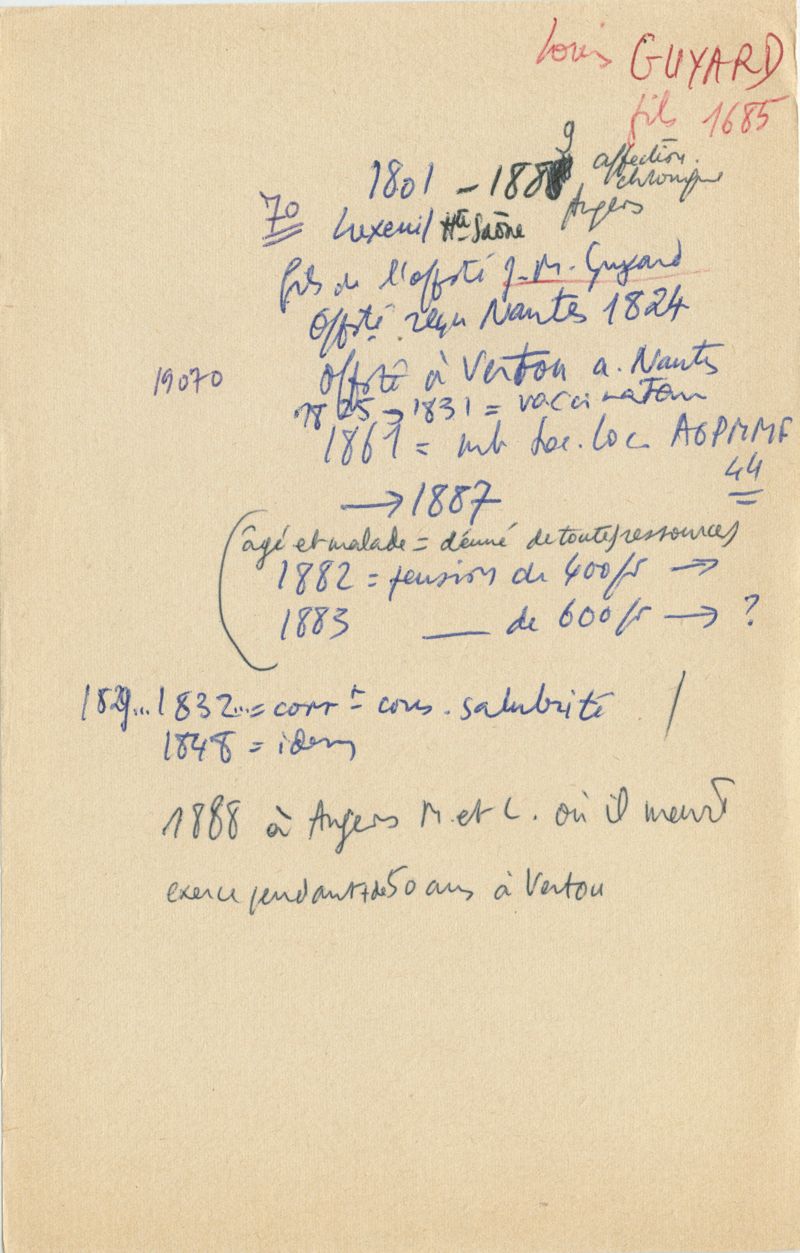 Louis GUYARD
fils 1685
1801 - 1889 affection chronique
Angers
70 Luxeuil Hte Saône
fils de l'offsté J.M. Guyard
Offsté reçu Nantes 1824
19070
Offsté à Vertou a. Nantes
1825 → 1831 = vaccination
1861 = mb Soc. loc. AGPMMF
44
→ 1887
(âgé et malade = dénué de toutes ressources
1882 = pension de 400 fr →
1883 — de 600 fr → ?
1829... 1832... = corrt cons. salubrité /
1848 = idem
1888 à Angers M. et L. où il meurt
exerce pendant + de 50 ans à Vertou